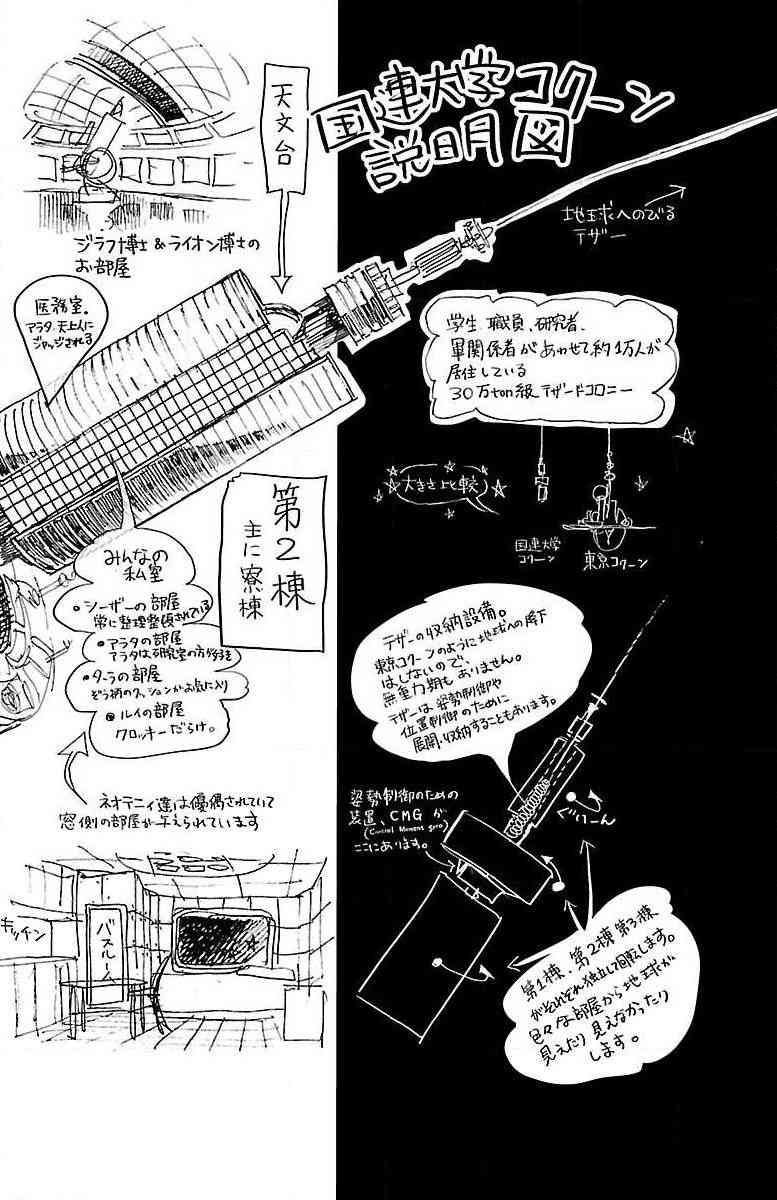 国連大学コクーン
説明図
天文台
ジラフ博士&ライオン博士の
お部屋
地球へのびる
テザー
医務室。
アラタ、天上人に
ジャッジされる
学生、職員、研究者、
軍関係者があわせて約1万人が
居住している
30万ton級テザードコロニー
大きさ比較
国連大学
コクーン
東京コクーン
第2棟
主に寮棟
みんなの
私室
・シーザーの部屋
常に整理整頓されている
・アラタの部屋
アラタは研究室の方が好き
・ターラの部屋
ぞう柄のクッションがお気に入り
・ルイの部屋
クロッキーだらけ。
ネオテニィ達は優偶されていて
窓側の部屋が与えられています
キッチン
バスルーム
テザーの収納設備。
東京コクーンのように地球への降下
はしないので、
無重力期もありません。
テザーは姿勢制御や
位置制御のために
展開、収納することもあります。
姿勢制御のための
装置、CMGが
(Control Moment gyro)
ここにあります。
ぐいーん
第1棟、第2棟、第3棟
がそれぞれ独立して回転します。
色々な部屋から地球が
見えたり見えなかったり
します。